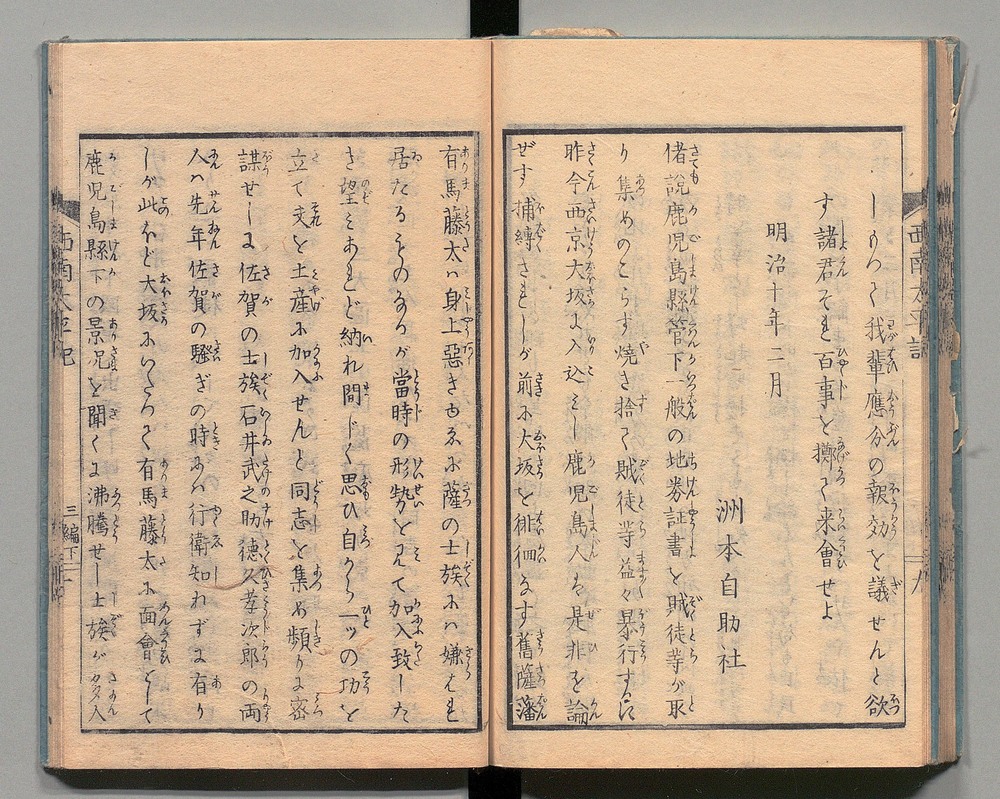 して我輩應分の報効を議せんと欲
す諸君それ百事を擲て来會せよ
明治十年二月
洲本自助社
偖説鹿児島縣管下一般の地券証書を賊徒等が取
り集めのこらず焼き捨て賊徒等益々暴行するに
昨今西京大坂に入込みし鹿児島人は是非を論
ぜず捕縛されしが前に大坂を徘徊なす舊薩藩
有馬藤太ハ身上惡きゆゑに薩の士族にハ嫌はれ
居たるものなるが當時の形勢を見て加入致した
き望みあれど納れ間じく思ひ自から一ツの功を
立て夫を土産に加入せんと同志を集め頻りに密
謀せしに佐賀の士族石井武之助德久孝次郎の両
人ハ先年佐賀の騒ぎの時にハ行衛知れずに有り
しが此ほど大坂にいたつて有馬藤太に面會して
鹿児島縣下の景况を聞くに沸騰せし士族が
西南太平記
九
西南太平記
三編下